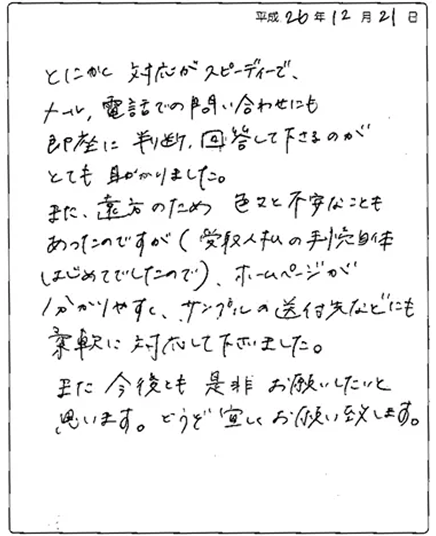 平成 26 年 12 月 21 日
とにかく 対応がスピーディーで、
メール、電話での問い合わせにも
即座に 判断、回答して下さるのが
とても 助かりました。
また、遠方のため 色々と不安なことも
あったのですが(受取人払の手続自体
はじめてでしたので)、ホームページが
分かりやすく、サンプルの送付先などにも
柔軟に 対応して下さいました。
また 今後とも 是非 お願いしたいと
思います。どうぞ 宜しくお願い致します。